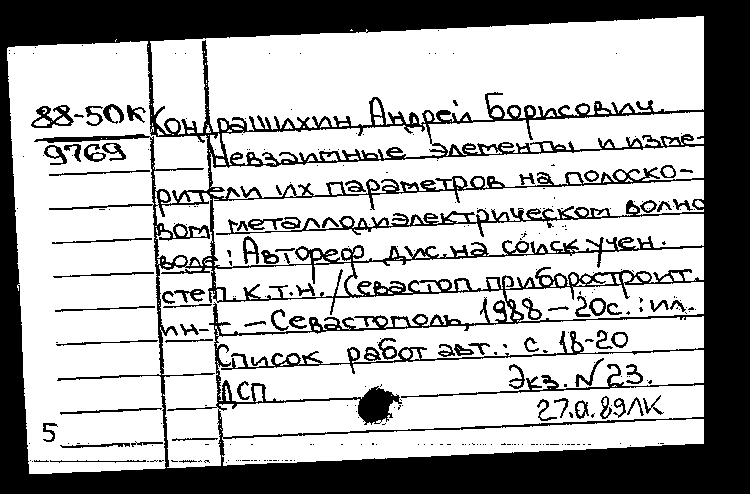 88-50К Кондрашихин, Андрей Борисович.
9769 Невзаимные элементы и изме-
рители их параметров на полоско-
вом металлодиэлектрическом волно
воде: Автореф. дис. на соиск. учен.
степ. к.т.н. / Севастоп. приборостроит.
ин-т. – Севастополь, 1988. – 20с. : ил.
Список работ авт.: с. 18-20
ДСП. Экз. № 23.
5